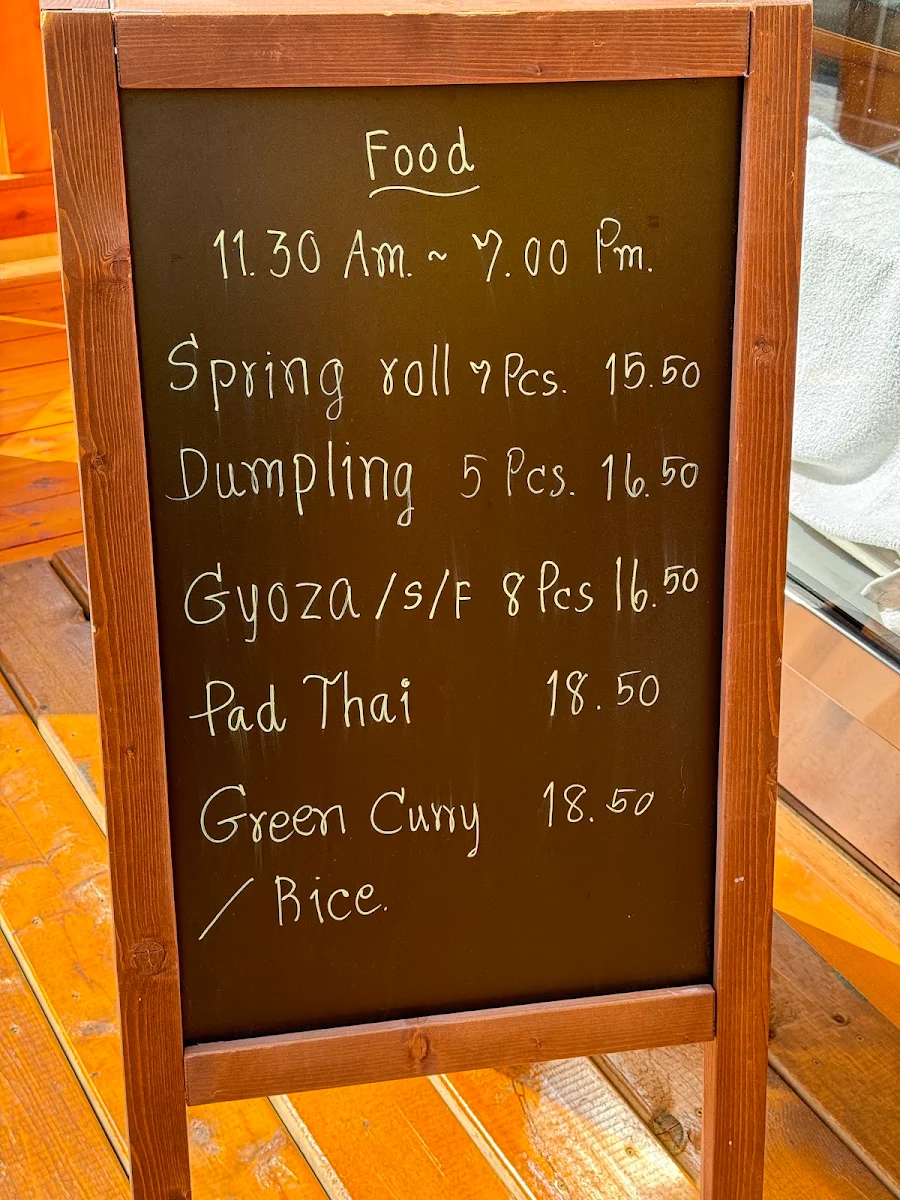 Food
11.30 Am. ~ 7.00 Pm.
Spring roll 7 Pcs. 15.50
Dumpling 5 Pcs. 16.50
Gyoza /S/F 8 Pcs 16.50
Pad Thai 18.50
Green Curry 18.50
/ Rice.